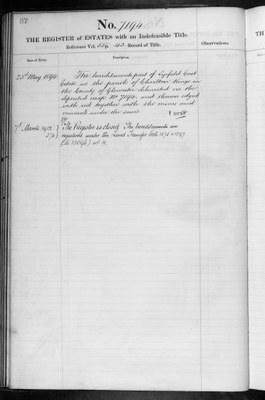 No. 7194
THE REGISTER of ESTATES with an Indefeasible Title.
Reference Vol. Record of Title.
Observations.
Date of Entry.
Description.
25th May 1899
The hereditaments part of Lyefield Court
Estate in the parish of Charlton Kings in
the County of Gloucester delineated in the
deposited map No 7194 and thereon edged
with red together with the mines and
minerals under the same
7th March 1902
The Register is closed. The hereditaments are
registered under the Land Transfer Acts 1875 & 1897